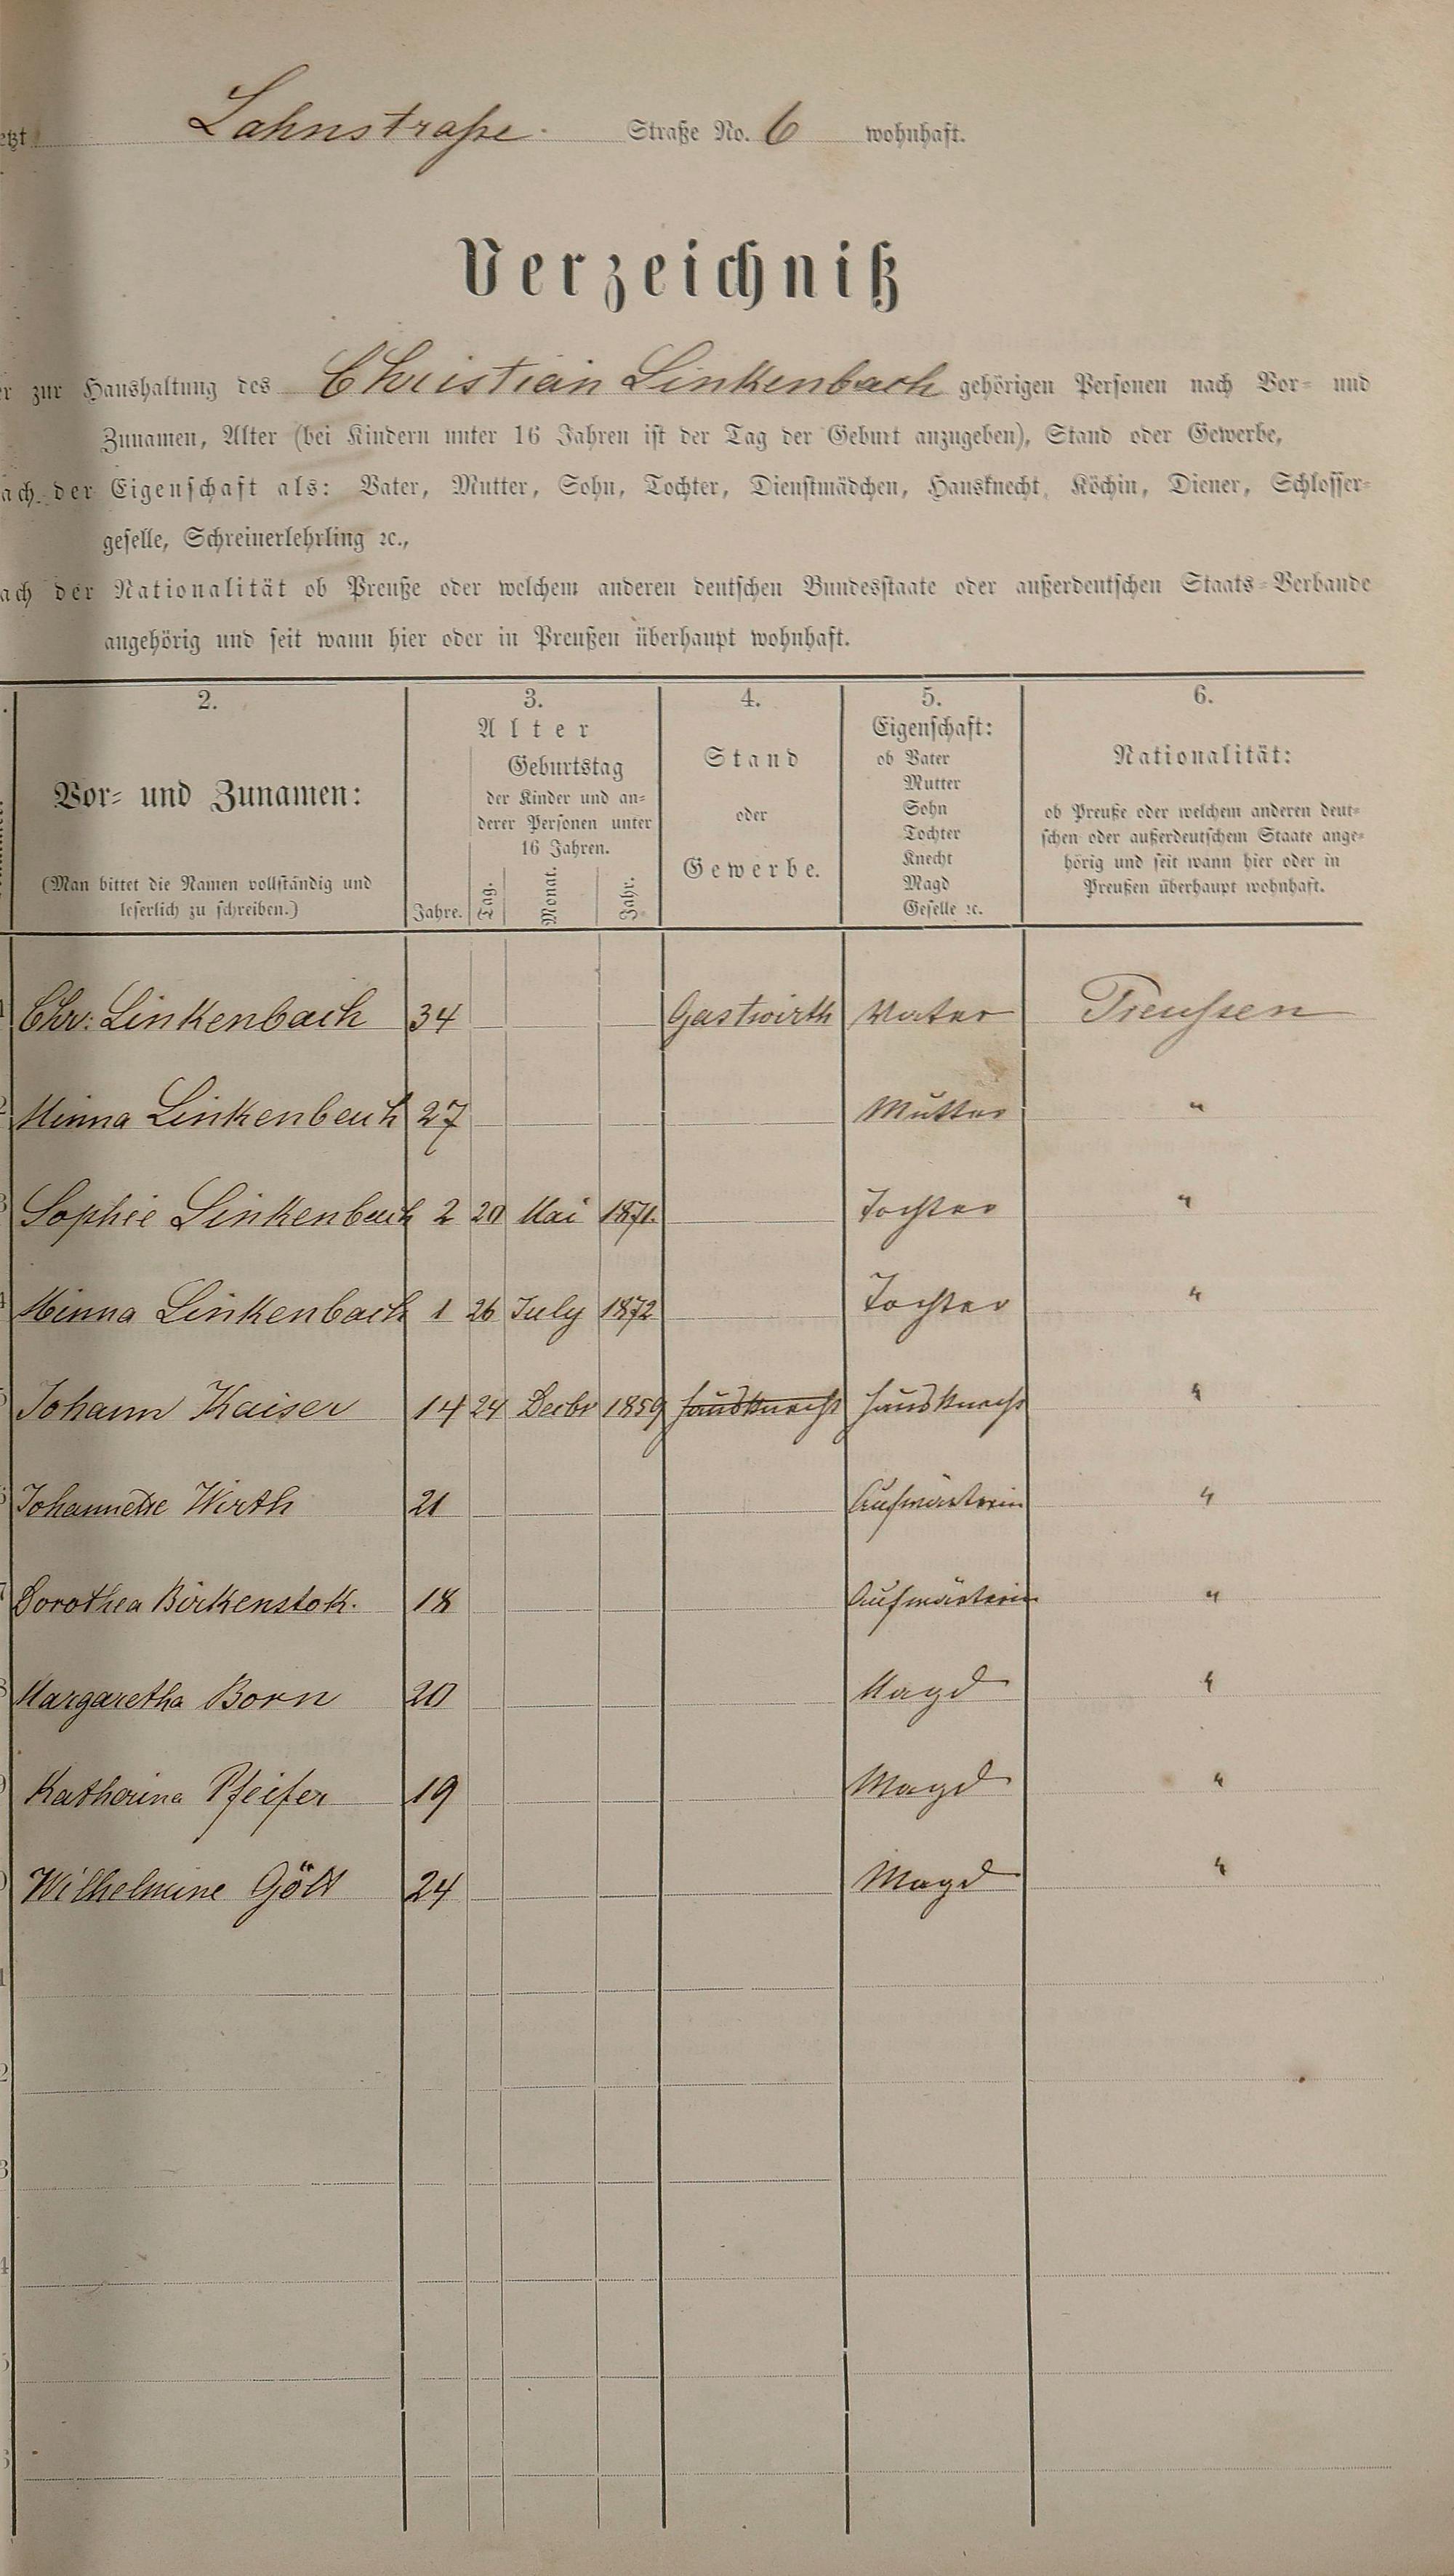 etzt Lahnstraße. Straße No. 6 wohnhaft.
Verzeichniß
er zur Haushaltung des Christian Linkenbach gehörigen Personen nach Vor- und
Zunamen, Alter (bei Kindern unter 16 Jahren ist der Tag der Geburt anzugeben), Stand oder Gewerbe,
ach der Eigenschaft als: Vater, Mutter, Sohn, Tochter, Dienstmädchen, Hausknecht, Köchin, Diener, Schlosser-
geselle, Schreinerlehrling ꝛc.,
ach der Nationalität ob Preuße oder welchem anderen deutschen Bundesstaate oder außerdeutschen Staats-Verbande
angehörig und seit wann hier oder in Preußen überhaupt wohnhaft.
2. 3. 4. 5. 6.
Vor- und Zunamen:
(Man bittet die Namen vollständig und
leserlich zu schreiben.)
Alter
Geburtstag
der Kinder und an-
derer Personen unter
16 Jahren.
Jahre. Tag. Monat. Jahr.
Stand
oder
Gewerbe.
Eigenschaft:
ob Vater
Mutter
Sohn
Tochter
Knecht
Magd
Geselle ꝛc.
Nationalität:
ob Preuße oder welchem anderen deut-
schen oder außerdeutschem Staate ange-
hörig und seit wann hier oder in
Preußen überhaupt wohnhaft.
1 Chr: Linkenbach 34 Gastwirth Vater Preussen
2 Minna Linkenbach 27 Mutter "
3 Sophie Linkenbach 2 20 Mai 1871. Tochter "
4 Minna Linkenbach 1 26 July 1872 Tochter "
5 Johann Kaiser 14 24 Decbr 1859 Hausknecht Hausknecht "
6 Johannette Wirth 21 Aufwärterin "
7 Dorothea Birkenstok. 18 Aufwärterin "
8 Margaretha Born 20 Magd "
9 Katharina Pfeifer 19 Magd "
0 Wilhelmine 24 Magd "
1
2
3
4
5
6